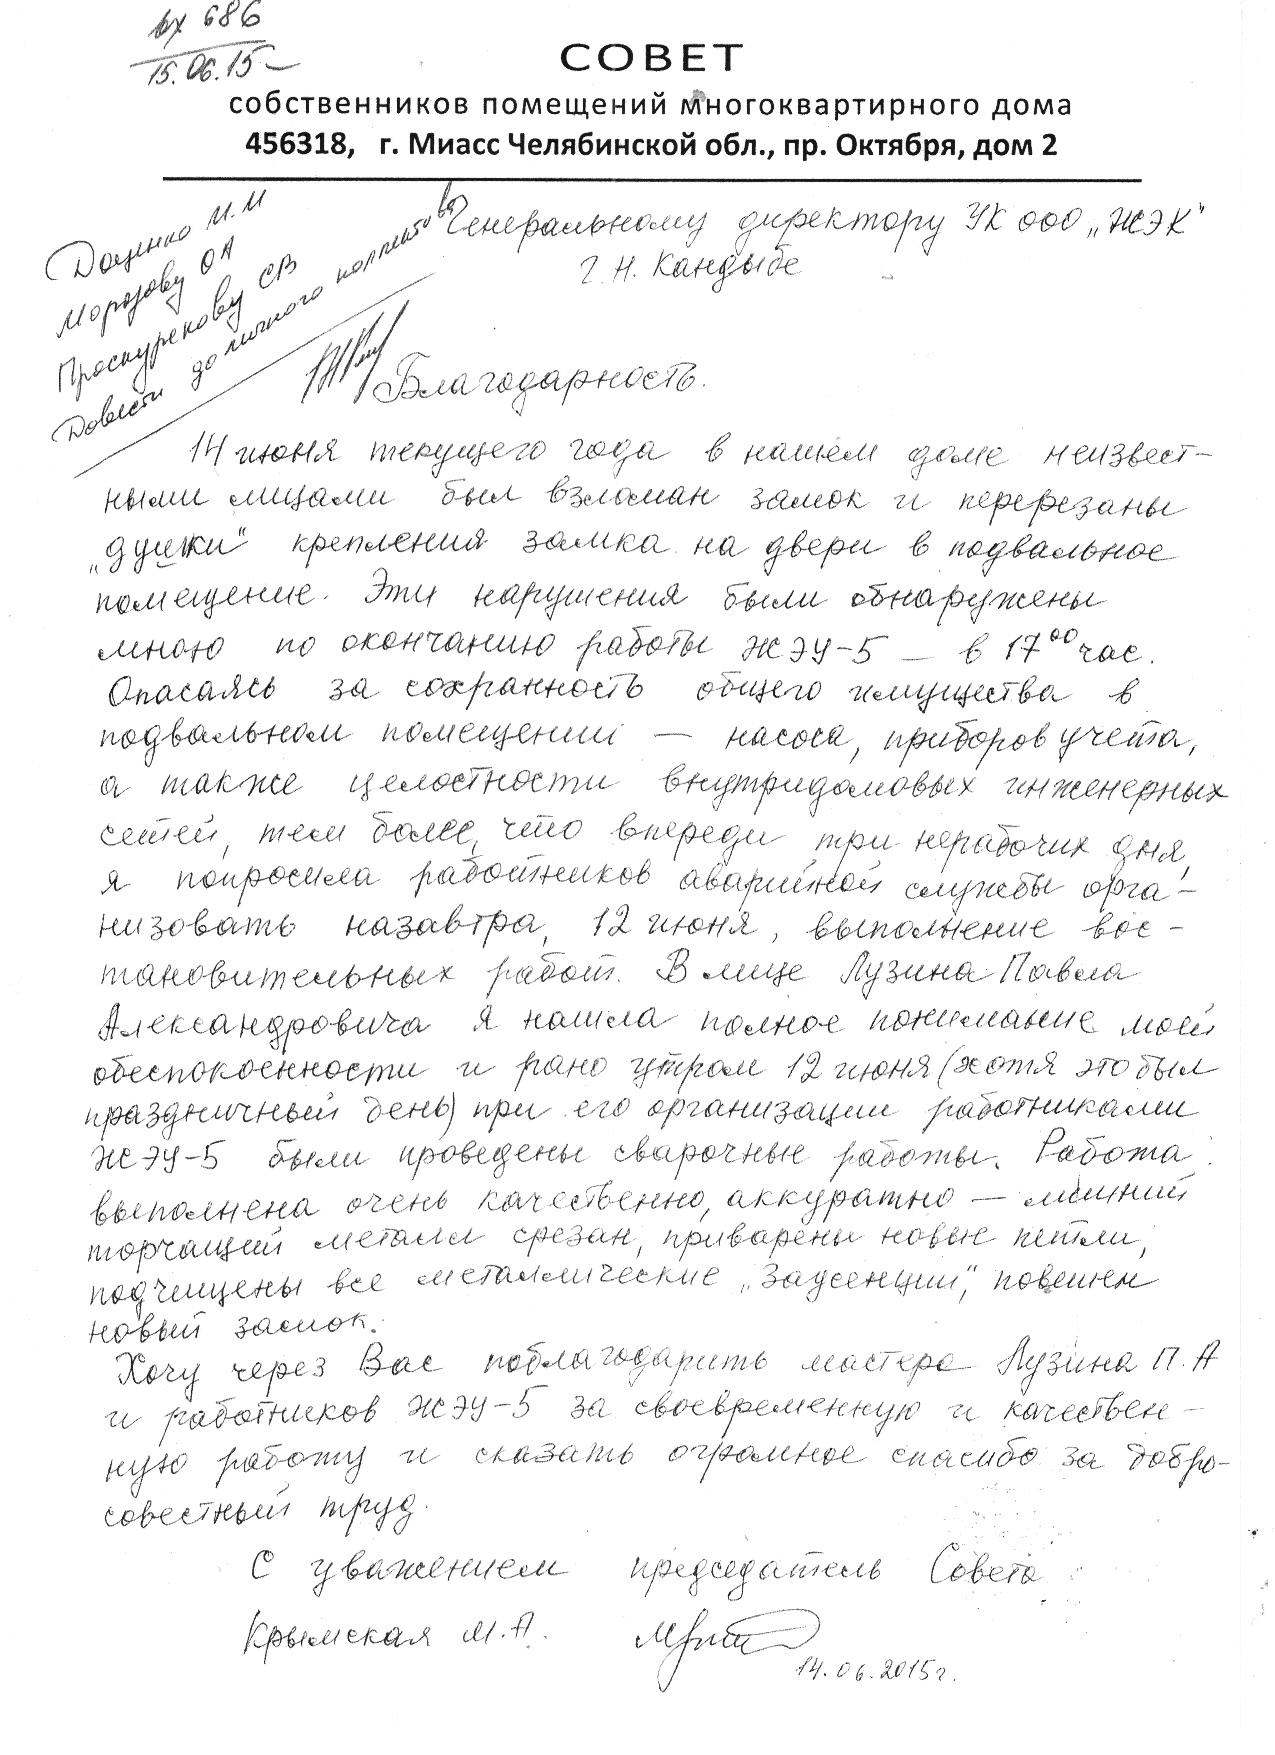 вх 686
15.06.15
СОВЕТ
собственников помещений многоквартирного дома
456318, г. Миасс Челябинской обл., пр. Октября, дом 2
Доценко М.М
Морозову ОА
Проскурекову СВ
Довести до личного
Генеральному директору УК ООО „ЖЭК"
Г.Н. Кандыбе
Благодарность.
14 июня текущего года в нашем доме неизвест-
ными лицами был взломан замок и перерезаны
„душки" крепления замка на двери в подвальное
помещение. Эти нарушения были обнаружены
мною по окончанию работы ЖЭУ-5 – в 17⁰⁰ час.
Опасаясь за сохранность общего имущества в
подвальном помещении – насоса, приборов учета,
а также целостности внутридомовых инженерных
сетей, тем более, что впереди три нерабочих дня,
я попросила работников аварийной службы орга-
низовать назавтра, 12 июня, выполнение вос-
тановительных работ. В лице Лузина Павла
Александровича я нашла полное понимание моей
обеспокоенности и рано утром 12 июня (хотя это был
праздничный день) при его организации работниками
ЖЭУ-5 были проведены сварочные работы. Работа
выполнена очень качественно, аккуратно – лишний
торчащий металл срезан, приварены новые петли,
подчищены все металлические „заусенции", повешен
новый замок.
Хочу через Вас поблагодарить мастера Лузина П.А
и работников ЖЭУ-5 за своевременную и качествен-
ную работу и сказать огромное спасибо за добро-
совестный труд.
С уважением председатель Совета
Крымская М.А.
14.06.2015г.